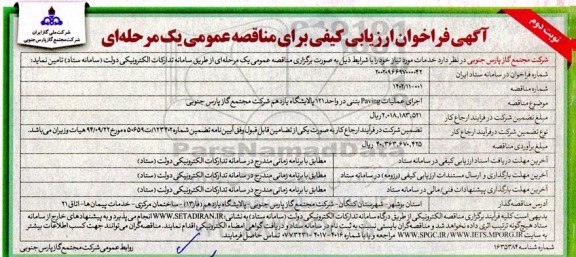 نوبت دوم
شرکت ملی گاز ایران
شرکت مجتمع گاز پارس جنوبی
آگهی فراخوان ارزیابی کیفی برای مناقصه عمومی یک مرحله‌ای
شرکت مجتمع گاز پارس جنوبی در نظر دارد خدمات مورد نیاز خود را با شرایط ذیل به صورت برگزاری مناقصه عمومی یک مرحله‌ای از طریق سامانه تدارکات الکترونیکی دولت (سامانه ستاد) تامین نماید:
شماره فراخوان در سامانه ستاد ایران
شماره مناقصه ۱۴۰۲/۱۱-۰۰۱
موضوع مناقصه اجرای عملیات Paving بتنی در واحد ۱۲۱ پالایشگاه یازدهم شرکت مجتمع گاز پارس جنوبی
مبلغ تضمین شرکت در فرآیند ارجاع کار ۲,۰۱۸,۱۸۳,۵۲۱ ریال
نوع تضمین شرکت در فرآیند ارجاع کار تضمین شرکت در فرآیند ارجاع کار به صورت یکی از تضامین قابل قبول وفق آیین نامه تضمین شماره ۱۲۳۴۰۲/ت۵۰۶۵۹ه مورخ ۹۴/۰۹/۲۲ هیات وزیران می‌باشد.
مبلغ برآوردی مناقصه ۴۰,۳۶۳,۶۷۰,۴۲۵ ریال
آخرین مهلت دریافت اسناد ارزیابی کیفی در سامانه ستاد مطابق با برنامه زمانی مندرج در سامانه تدارکات الکترونیکی دولت (ستاد)
آخرین مهلت بارگذاری و ارسال مستندات ارزیابی کیفی (رزومه) در سامانه ستاد مطابق با برنامه زمانی مندرج در سامانه تدارکات الکترونیکی دولت (ستاد)
آخرین مهلت بارگذاری پیشنهادات فنی/مالی در سامانه ستاد مطابق با برنامه زمانی مندرج در سامانه تدارکات الکترونیکی دولت (ستاد)
آدرس مناقصه‌گذار استان بوشهر - شهرستان کنگان - شرکت مجتمع گاز پارس جنوبی - پالایشگاه یازدهم (فاز۱۳) - ساختمان مرکزی - خدمات پیمان‌ها - اتاق ۲۱
بدیهی است کلیه فرآیند برگزاری مناقصه الکترونیکی از طریق درگاه سامانه تدارکات الکترونیکی دولت (سامانه ستاد) به نشانی WWW.SETADIRAN.IR انجام می‌پذیرد و به پیشنهادهای خارج از سامانه
ستاد هیچ‌گونه ترتیب اثری داده نخواهد شد و مناقصه‌گران بایستی نسبت به ثبت نام در سامانه ستاد و دریافت گواهی امضاء الکترونیکی اقدام نمایند. مناقصه‌گران می‌توانند جهت کسب اطلاعات بیشتر
به سایت WWW.SPGC.IR/ WWW.IETS.MPORG.IR مراجعه و یا با شماره ۲۰۱۶-۲۰۱۷-۰۷۷۳۲۳۱ تماس حاصل فرمایند.
شماره شناسه ۱۶۳۵۳۸۴
روابط عمومی شرکت مجتمع گاز پارس جنوبی
ParsNamadData